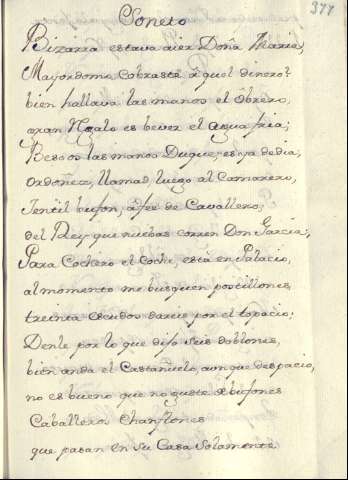 377
Soneto
Bizarra estava aier Doña Maria,
Mayordomo, Cobraste aquel dinero?
bien hallava las manos el obrero,
gran Regalo es bever el agua fria;
Besoos las manos Duque, es ya de dia,
Ordoñez, llamad, luego al Camarero,
Jentil bufon, à feé de Cavallero;
del Rey que nuebas corren Don Garcia;
Para Cochero el Coche, està en Palacio,
al momento me busquen postillones
treinta escudos darue por el topacio;
Denle por lo que dijo seis doblones,
bien anda el Castañuelo, aunque despacio,
no es bueno que no guste de bufones
Caballeros chanflones
que pasan en su Casa solamente